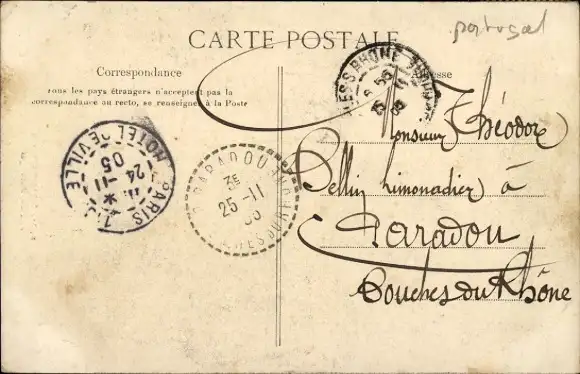 portugal
CARTE POSTALE
Correspondance
Tous les pays étrangers n'acceptent pas la
correspondance au recto, se renseigner à la Poste
Adresse
Monsieur Théodore
Pellin limonadier à
Paradou
Bouches du Rhône
PARIS
HOTEL DE VILLE
24 -11
05
PARADOU
3E
25 -11
05